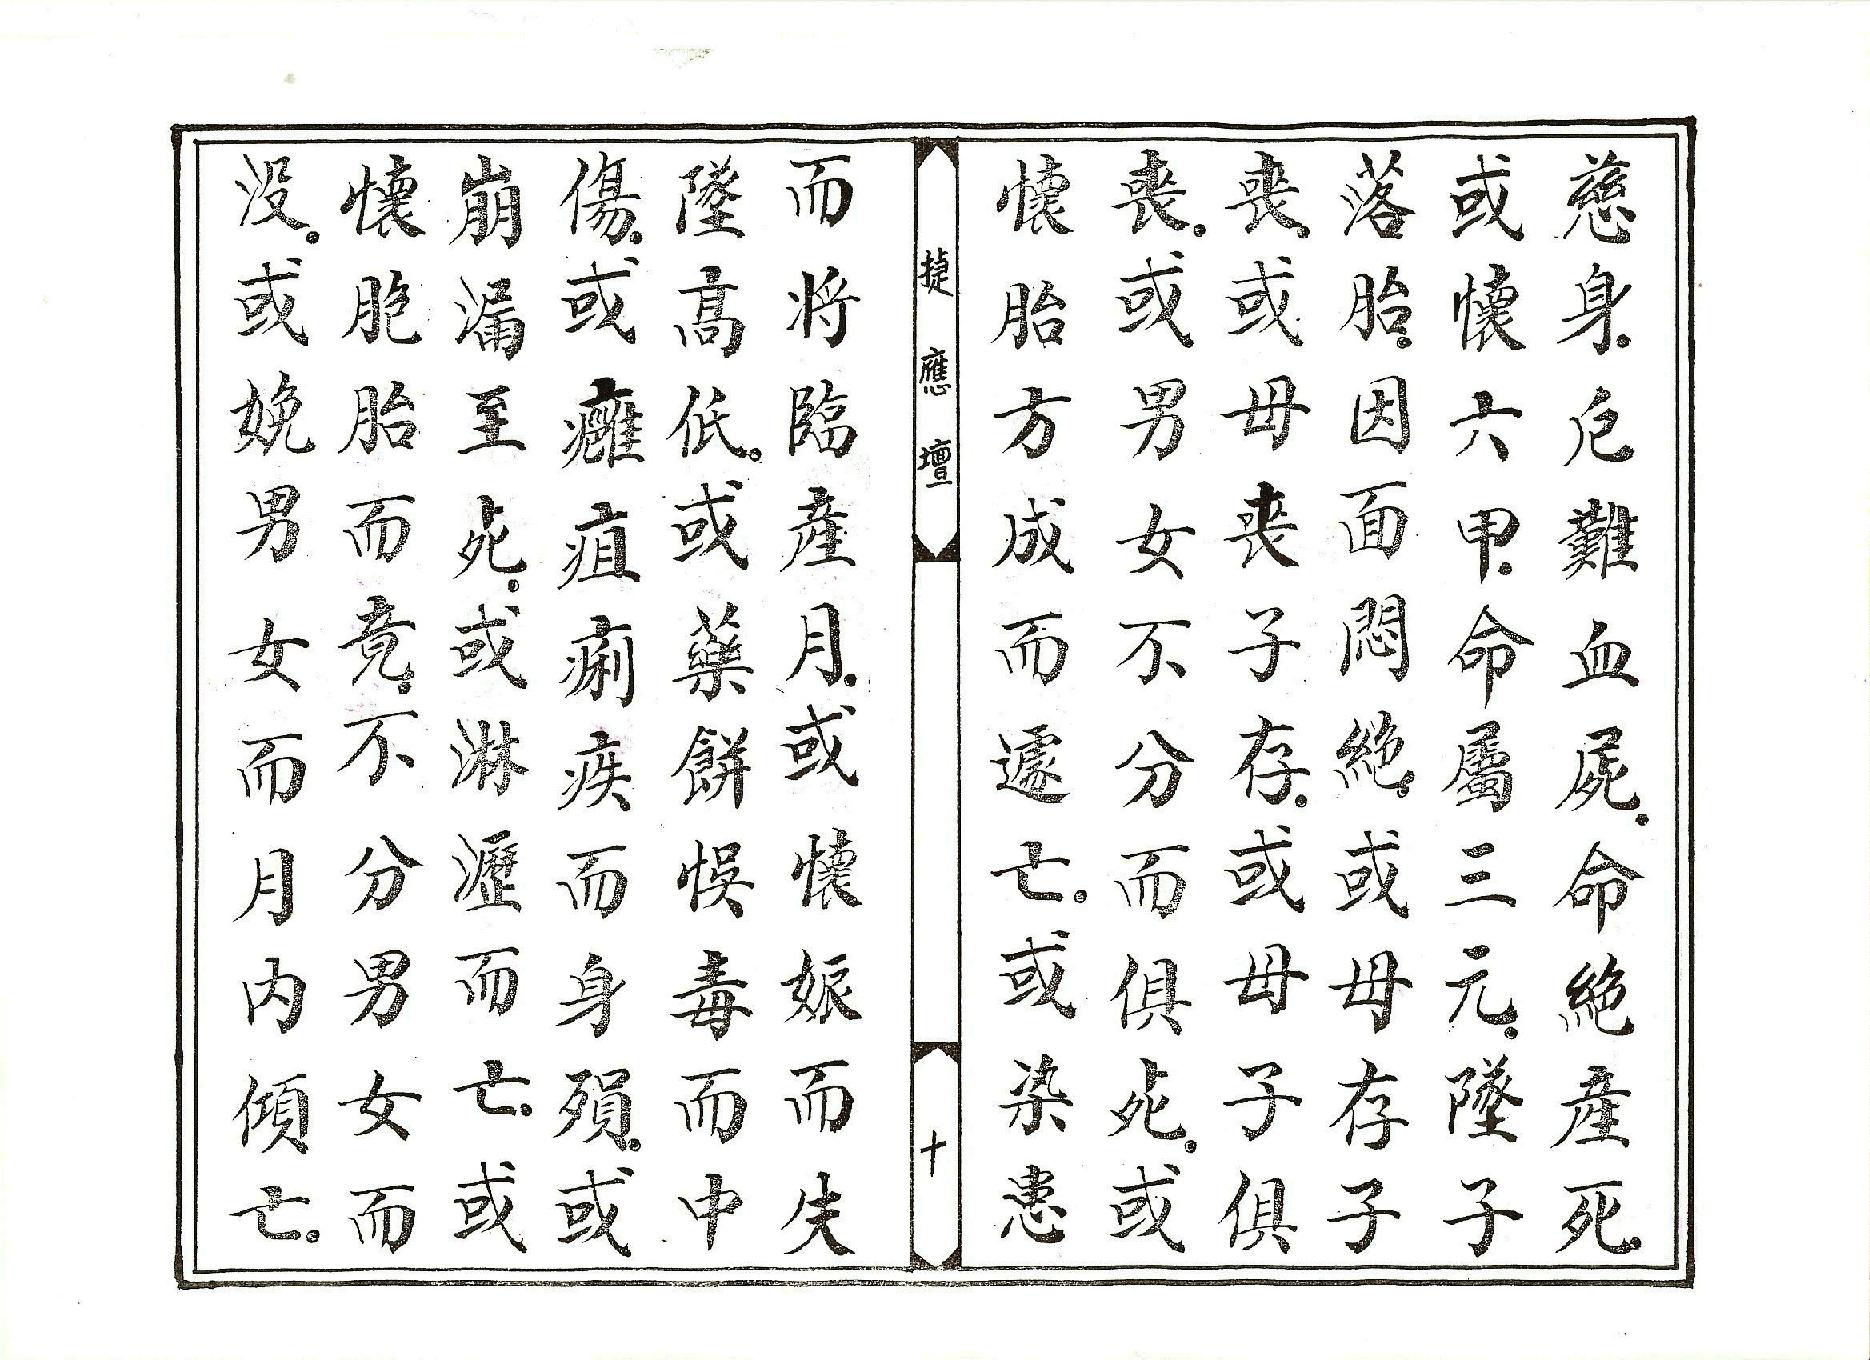 慈身。卮難血屍。命絶產死。
或懷六甲。命屬三元。墜子
落胎。因面悶絶。或母存子
喪。或毋喪子存。或毋子俱
喪。或男女不分而俱死。或
懷胎方成而遽亡。或染患
捷應壇
十
而将臨產月。或懷娠而失
墜高低。或藥餅悞毒而中
傷。或癰疽痢疾而身殞。或
崩漏至死。或淋瀝而亡。或
懷胞胎而竟。不分男女而
没。或娩男女而月内傾亡。